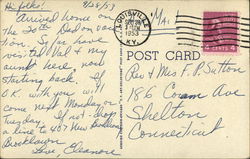 Hi folks! 8/25/53
Arrived home on
the 20th. Had on vaca
tion. So far have
visited Val & my
aunt here, now
starting back. If
O.K. with you will
come next Monday or
Tuesday. If not drop
a line to 407 New Broadway
Brooklawn
Love, Eleanore
LOUISVILLE
KY.
1953
4 CENTS 4
POST CARD
Rev & Mrs F. P. Sutton
186 Coram Ave
Shelton
Connecticut